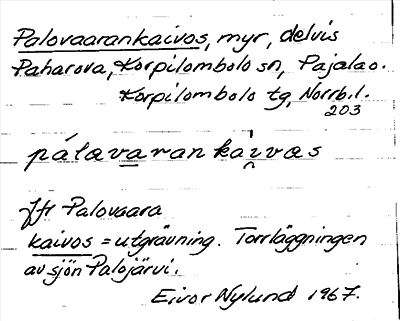 Palovaarankaivos, myr, delvis
Paharova, Korpilombolo sn, Pajala o.
Korpilombolo tg, Norrb. l.
203
pálavaran kaivvas
Jfr Palovaara
kaivos = utgrävning. Torrläggningen
av sjön Palojärvi.
Eivor Nylund 1967.